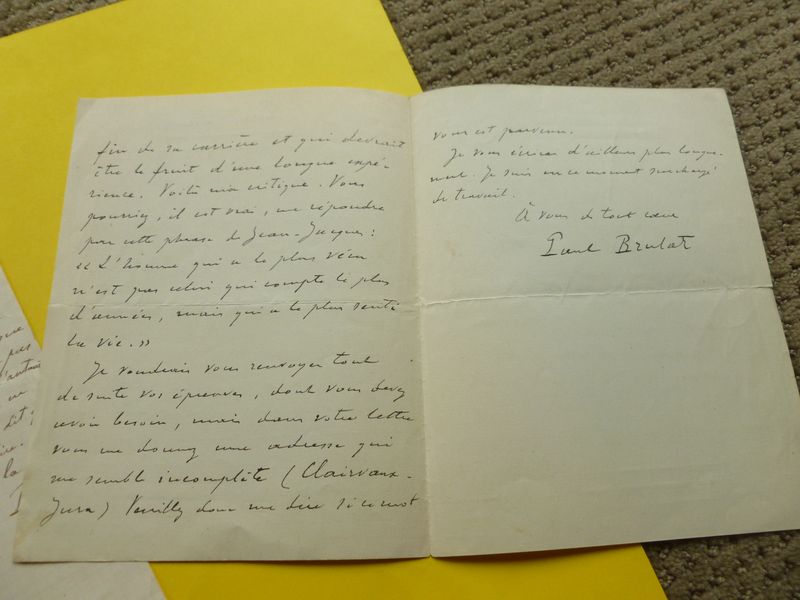 fin de sa carrière et qui devrait
être le fruit d'une longue expé-
rience. Voilà ma critique. Vous
pourriez, il est vrai, me répondre
par cette phrase de Jean-Jacques :
« L'homme qui a le plus vécu
n'est pas celui qui compte le plus
d'années, mais qui a le plus senti
la vie. »
Je voudrais vous renvoyer tout
de suite vos épreuves, dont vous devez
avoir besoin, mais dans votre lettre
vous me donnez une adresse qui
me semble incomplète (Clairvaux-
Jura) Veuillez donc me dire si ce mot
vous est parvenu.
Je vous écrirai d'ailleurs plus longue-
ment. Je suis en ce moment surchargé
de travail.
À vous de tout cœur
Paul Brulat
que
pas
la